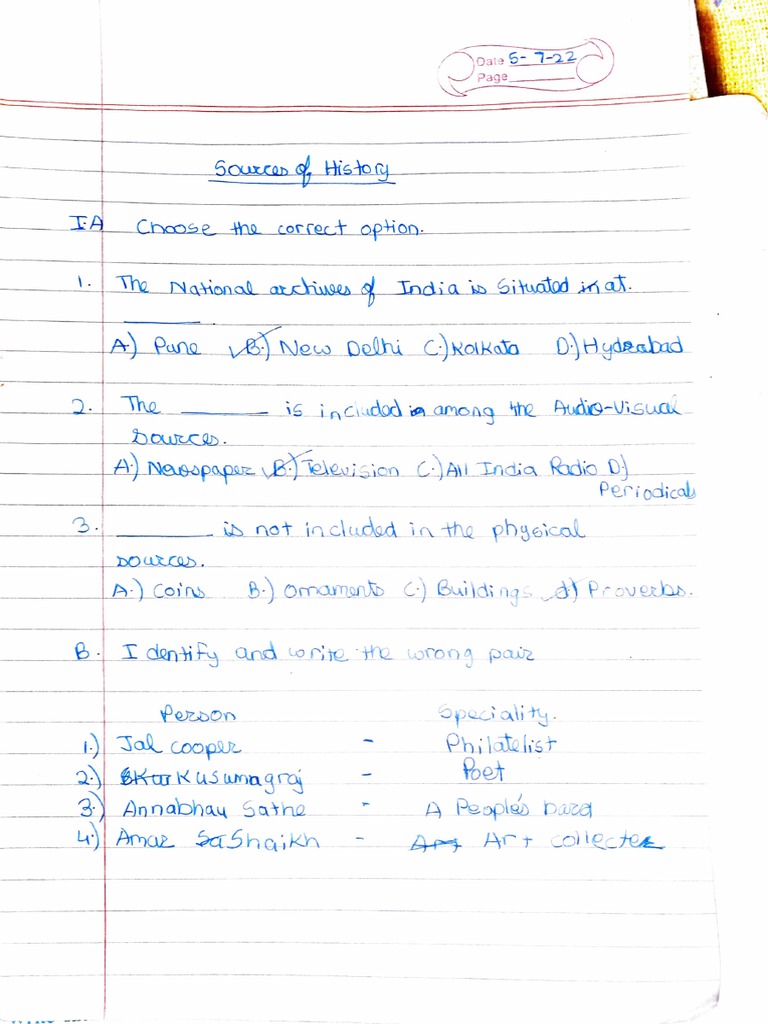 Date 5-7-22
Page
Sources of History
I.A Choose the correct option.
1. The National archives of India is Situated in at.
A.) Pune B.) New Delhi C.) Kolkata D.) Hyderabad
2. The ________ is included in among the Audio-Visual
sources.
A.) Newspaper B.) Television C.) All India Radio D.)
Periodicals
3. ________ is not included in the physical
sources.
A.) Coins B.) Ornaments C.) Buildings d) Proverbs.
B. Identify and write the wrong pair
Person Speciality.
1.) Jal cooper - Philatelist
2.) Kusumagraj - Poet
3.) Annabhau Sathe - A People's bard
4.) Amar Shaikh - Art collecter